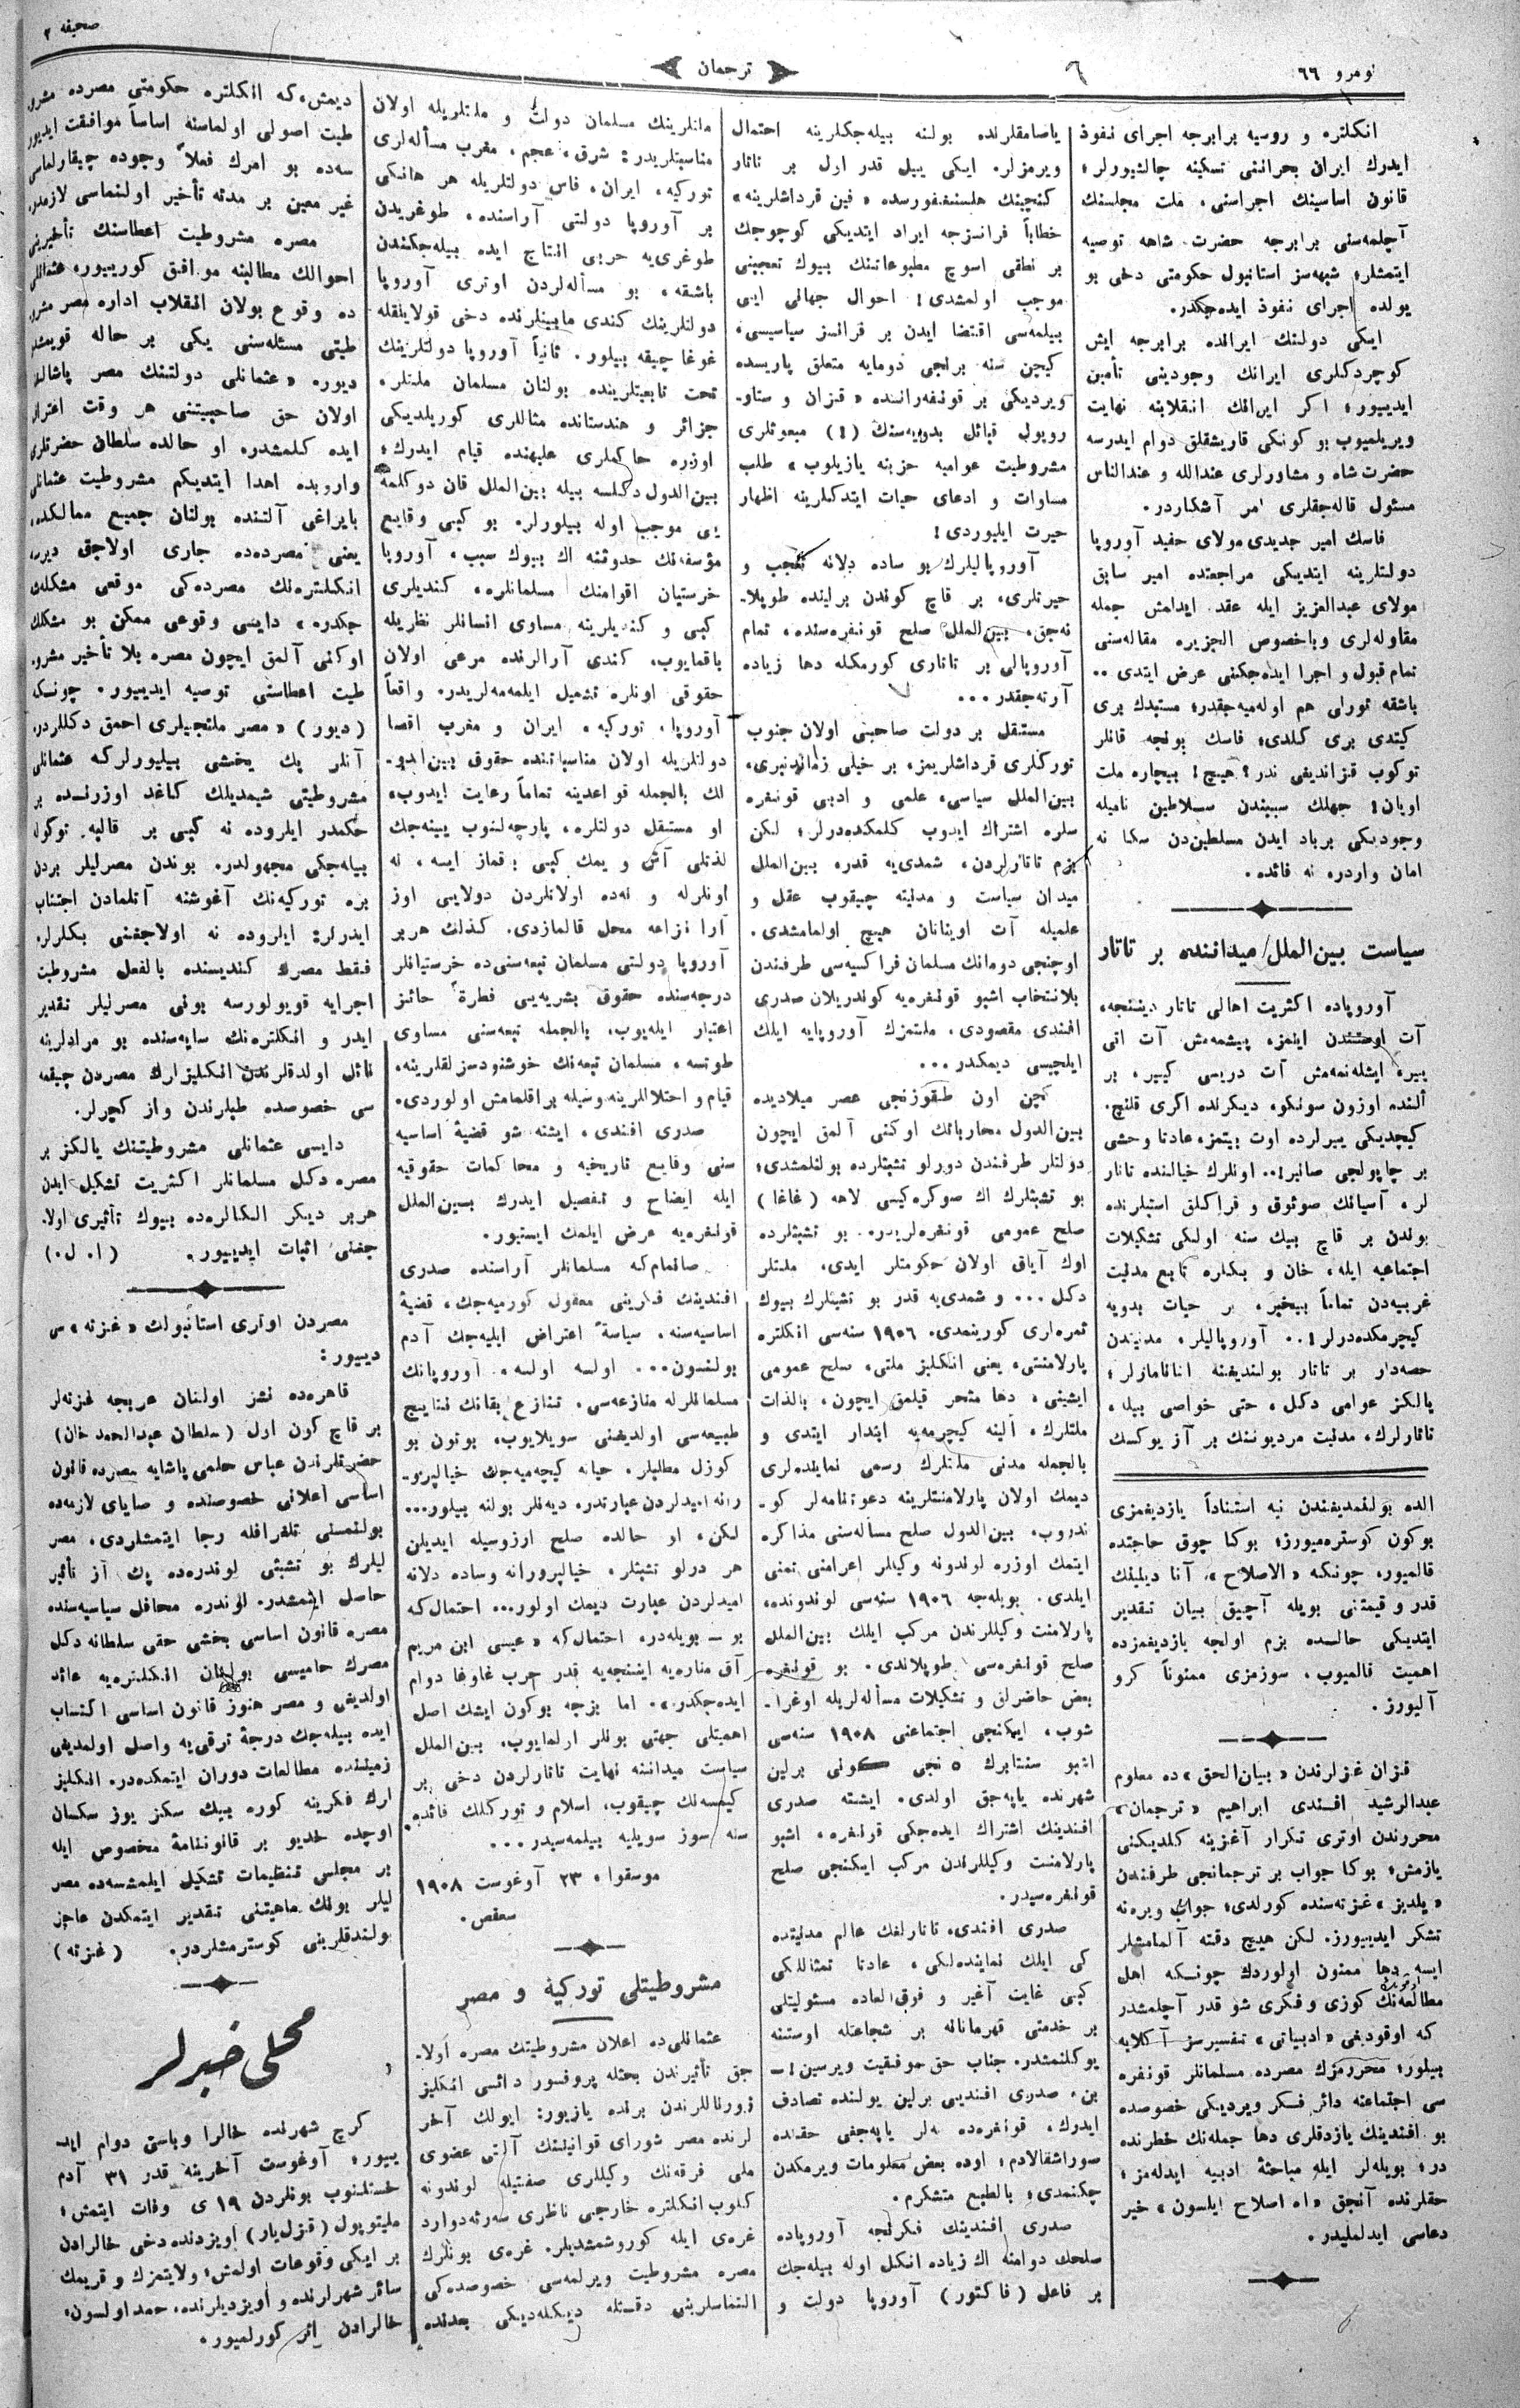 نومرو ٦٦
ترجمان
صحیفه ٢
انکلتره و روسیه برابرجه اجرای نفوذ
ایدرك ایران بحراننی تسکینه چالشیورلر؛
قانون اساسینك اجراسنی، ملت مجلسنك
آچلمه‌سنی برابرجه حضرت شاهه توصیه
ایتمشلر؛ شبهه‌سز استانبول حکومتی دخی بو
یولده اجرای نفوذ ایده‌جکدر.
ایکی دولتك ایرانده برابرجه ایش
کوچردکلری ایرانك وجودینی تأمین
ایدییور؛ اکر ایرانك انقلابنه نهایت
ویریلمیوب بو کونکی قاریشقلق دوام ایدرسه
حضرت شاه و مشاورلری عندالله و عندالناس
مسئول قاله‌جقلری امر آشکاردر.
فاسك امیر جدیدی مولای حفید آوروپا
دولتلرینه ایتدیکی مراجعتده امیر سابق
مولای عبدالعزیز ایله عقد ایدلمش جمله
مقاوله‌لری وباخصوص الجزیره مقاله‌سنی
تمام قبول و اجرا ایده‌جکنی عرض ایتدی..
باشقه تورلی هم اوله‌میه‌جقدر؛ مستبدك بری
کیتدی بری کلدی؛ فاسك بونجه قانلر
توکوب قزاندیغی ندر؟ هیچ! بیچاره ملت
اویان! جهلك سببندن سلاطین نامیله
وجودیکی برباد ایدن مسلطین‌دن سکا نه
امان واردر، نه فائده.
سیاست بین‌الملل میداننده بر تاتار
آوروپاده اکثریت اهالی تاتار دیننجه،
آت اوستندن اینمز، پیشمه‌مش آت اتی
ییر، ایشله‌نمه‌مش آت دریسی کییر، بر
ألنده اوزون سونکو، دیکرنده اکری قلنچ،
کیچدیکی ییرلرده اوت بیتمز، عادتا وحشی
بر چاپولجی صانیر!.. اونلرك خیالنده تاتار
لر، آسیانك صوئوق و قراکلق استپلرنده
بوندن بر قاچ بیك سنه اولکی تشکیلات
اجتماعیه ایله، خان و بکلره تابع مدنیت
غربیه‌دن تماماً بیخبر، بر حیات بدویه
کیچرمکده‌درلر!.. آوروپالیلر، مدنیتدن
حصه‌دار بر تاتار بولندیغنه اناناماز‌لر؛
یالکز عوامی دکل، حتی خواصی بیله،
تاتارلرك، مدنیت مردیوننك بر آز یوکسك
الده بولنمدیغندن نیه استناداً یازدیغمزی
بوکون کوستره‌میورز؛ بوکا چوق حاجتده
قالمیور، چونکه «الاصلاح»، آنا دیلینك
قدر و قیمتنی بویله آچیق بیان تقدیر
ایتدیکی حالده بزم اولجه یازدیغمزده
اهمیت قالمیوب، سوزمزی ممنوناً کرو
آلیورز.
قزان غزتلرندن «بیان‌الحق»ده معلوم
عبدالرشید افندی ابراهیم «ترجمان»
محررندن اوتری تکرار آغزینه کلدیکنی
یازمش؛ بوکا جواب بر ترجمانجی طرفندن
«یلدیز» غزته‌سنده کورلدی؛ جواب ویره‌نه
تشکر ایدییورز. لکن هیچ دقته آلمامشلر
ایسه دها ممنون اولوردك چونکه اهل
مطالعه‌نك کوزی و فکری شو قدر آچلمشدر
که اوقودیغی «ادبیاتی» تفسیرسز آکلایه
بیلور؛ محررمزك مصرده مسلمانلر قونفره
سی اجتماعنه دائر فکر ویردیکی خصوصده
بو افندینك یازدقلری دها جمله‌نك خطرنده
در؛ بویله‌لر ایله مباحثهٔ ادبیه ایدله‌مز؛
حقلرنده آنجق «الله اصلاح ایلسون» خیر
دعاسی ایدلملیدر.
یاصامقلرنده بولنه بیله‌جکلرینه احتمال
ویرمزلر. ایکی ییل قدر اول بر تاتار
کنجینك هلسنغفورسده «فین قرداشلرینه»
خطاباً فرانسزجه ایراد ایتدیکی کوچوجك
بر نطقی اسوچ مطبوعاتنك بیوك تعجبنی
موجب اولمشدی! احوال جهانی ایی
بیلمه‌سی اقتضا ایدن بر فرانسز سیاسیسی،
کیچن سنه برنجی دومایه متعلق پاریسده
ویردیکی بر قونفه‌رانسده «قزان و ستاو-
روپول قبائل بدویه‌سنك (!) مبعوثلری
مشروطیت عوامیه حزبنه یازیلوب» طلب
مساوات و ادعای حیات ایتدکلرینه اظهار
حیرت ایلیوردی!
آوروپالیلرك بو ساده دلانه تعجب و
حیرتلری، بر قاچ کوندن برلینده طوپلا-
نه‌جق، بین‌الملل صلح قونفره‌سنده، تمام
آوروپالی بر تاتاری کورمکله دها زیاده
آرته‌جقدر...
مستقل بر دولت صاحبی اولان جنوب
تورکلری قرداشلریمز، بر خیلی زماندنبری،
بین‌الملل سیاسی، علمی و ادبی قونفره
سلره اشتراك ایدوب کلمکده‌درلر؛ لکن
بزم تاتارلردن، شمدی‌یه قدر، بین‌الملل
میدان سیاست و مدنیته چیقوب عقل و
علمیله آت اوینانان هیچ اولمامشدی.
اوچنجی دومانك مسلمان فراکسیه‌سی طرفندن
بلانتخاب اشبو قونفره‌یه کوندریلان صدری
افندی مقصودی، ملتمزك آوروپایه ایلك
ایلچیسی دیمکدر...
کچن اون طقوزنجی عصر میلادیده
بین‌الدول محارباتك اوکنی آلمق ایچون
دولتلر طرفندن دورلو تشبثلرده بولنلمشدی؛
بو تشبثلرك اك صوکره‌کیسی لاهه (غاغا)
صلح عمومی قونفره‌لریدر. بو تشبثلرده
اوك آیاق اولان حکومتلر ایدی، ملتلر
دکل... و شمدی‌یه قدر بو تشبثلرك بیوك
ثمره‌لری کورینمدی. ١٩٠٦ سنه‌سی انکلتره
پارلامنتی، یعنی انکلیز ملتی، صلح عمومی
ایشینی، دها مثمر قیلمق ایچون، بالذات
ملتلرك، ألینه کیچرمه‌یه ابتدار ایتدی و
بالجمله مدنی ملتلرك رسمی نماینده‌لری
دیمك اولان پارلامنتلرینه دعوتنامه‌لر کو-
ندروب، بین‌الدول صلح مسأله‌سنی مذاکره
ایتمك اوزره لوندونه وکیللر اعرامنی تمنی
ایلدی. بویله‌جه ١٩٠٦ سنه‌سی لوندونده،
پارلامنت وکیللرندن مرکب ایلك بین‌الملل
صلح قونفره‌سی طوپلاندی. بو قونفره
بعض حاضرلق و تشکیلات مسأله‌لریله اوغرا-
شوب، ایکنجی اجتماعنی ١٩٠٨ سنه‌سی
اشبو سنتابرك ٥ نجی کونی برلین
شهرنده یاپه‌جق اولدی. ایشته صدری
افندینك اشتراك ایده‌جکی قونفره، اشبو
پارلامنت وکیللرندن مرکب ایکنجی صلح
قونفره‌سیدر.
صدری افندی، تاتارلغك عالم مدنیتده
کی ایلك نماینده‌لکی، عادتا تمثاللکی
کبی غایت آغیر و فوق‌العاده مسئولیتلی
بر خدمتی قهرمانانه بر شجاعتله اوستنه
یوکلنمشدر. جناب حق موفقیت ویرسین!—
بن، صدری افندیی برلین یولنده تصادف
ایدرك، قونفره‌ده نه‌لر یاپه‌جغی حقنده
صوراشقالادم؛ اوده بعض معلومات ویرمکدن
چکنمدی؛ بالطبع متشکرم.
صدری افندینك فکرنجه آوروپاده
صلحك دوامنه اك زیاده انکل اوله بیله‌جك
بر فاعل (فاکتور) آوروپا دولت و
ملتلرینك مسلمان دولت و ملتلریله اولان
مناسبتلریدر: شرق، عجم، مغرب مسأله‌لری
تورکیه، ایران، فاس دولتلریله هر هانکی
بر آوروپا دولتی آراسنده، طوغریدن
طوغری‌یه حربی انتاج ایده بیله‌جکندن
باشقه، بو مسأله‌لردن اوتری آوروپا
دولتلرینك کندی مابینلرنده دخی قولایلقله
غوغا چیقه بیلور. ثانیاً آوروپا دولتلرینك
تحت تابعیتلرینده بولنان مسلمان ملتلر،
جزائر و هندستانده مثاللری کوریلدیکی
اوزره حاکملری علیهنده قیام ایدرك؛
بین‌الدول دکلسه بیله بین‌الملل قان دوکلمه
یی موجب اوله بیلورلر. بو کبی وقایع
مؤسفه‌نك حدوثنه اك بیوك سبب، آوروپا
خرستیان اقوامنك مسلمانلره، کندیلری
کبی و کندیلرینه مساوی انسانلر نظریله
باقمایوب، کندی آرالرنده مرعی اولان
حقوقی اونلره تشمیل ایلمه‌مه‌لریدر. واقعاً
آوروپا، تورکیه، ایران و مغرب اقصا
دولتلریله اولان مناسباتنده حقوق بین‌الدو-
لك بالجمله قواعدینه تماماً رعایت ایدوب،
او مستقل دولتلره، پارچه‌لنوب یینه‌جك
لذتلی آش و یمك کبی باقماز ایسه، نه
اونلرله و نه‌ده اولانلردن دولایی اوز
آرا نزاعه محل قالمازدی. کذلك هربر
آوروپا دولتی مسلمان تبعه‌سنی‌ده خرستیانلر
درجه‌سنده حقوق بشریه‌یی فطرةً حائز
اعتبار ایله‌یوب، بالجمله تبعه‌سنی مساوی
طوتسه، مسلمان تبعه‌نك خوشنودسزلقلرینه،
قیام و اختلاللرینه وسیله براقلمامش اولوردی.
صدری افندی، ایشته شو قضیهٔ اساسیه
سنی وقایع تاریخیه و محاکمات حقوقیه
ایله ایضاح و تفصیل ایدرك بین‌الملل
قونفره‌یه عرض ایلمك ایستیور.
صانمام که مسلمانلر آراسنده صدری
افندینك فکرینی معقول کورمیه‌جك، قضیهٔ
اساسیه‌سنه، سیاسةً اعتراض ایلیه‌جك آدم
بولنسون... اولسه اولسه، اوروپانك
مسلمانلرله منازعه‌سی، تنازع بقانك نتایج
طبیعه‌سی اولدیغنی سویلایوب، بوتون بو
کوزل مطلبلر، حیاته کیچه‌میه‌جك خیالپرو-
رانه امیدلردن عبارتدر، دیه‌نلر بولنه بیلور...
لکن، او حالده صلح ارزوسیله ایدیلن
هر درلو تشبثلر، خیالپرورانه وساده دلانه
امیدلردن عبارت دیمك اولور... احتمال که
بو — بویله‌در، احتمال که «عیسی ابن مریم
آق مناره‌یه ایننجه‌یه قدر حرب غاوغا دوام
ایده‌جکدر». اما بزجه بوکون ایشك اصل
اهمیتلی جهتی بونلر اولمایوب، بین‌الملل
سیاست میداننه نهایت تاتارلردن دخی بر
کیمسه‌نك چیقوب، اسلام و تورکلك فائده
سنه سوز سویلیه بیلمه‌سیدر...
موسقوا، ٢٣ آوغوست ١٩٠٨
سعفص.
مشروطیتلی تورکیه و مصر
عثمانلی‌ده اعلان مشروطیتك مصره اولا-
جق تأثیرندن بحثله پروفسور دائسی انکلیز
ژورناللرندن برنده یازیور: ایولك آخر
لرنده مصر شورای قوانیننك آلتی عضوی
ملی فرقه‌نك وکیللری صفتیله لوندونه
کلوب انکلتره خارجی ناظری سه‌رئه‌دوارد
غره‌ی ایله کوروشمشدیلر. غره‌ی بونلرك
مصره مشروطیت ویرلمه‌سی خصوصده‌کی
التماسلرینی دقتله دیکله‌دیکی بعدنده
دیمش، که انکلتره حکومتی مصرده مشرو
طیت اصولی اولماسنه اساساً موافقت ایدیور
سه‌ده بو امرك فعلاً وجوده چیقارلماسی
غیر معین بر مدته تأخیر اولنماسی لازمدر.
مصره مشروطیت اعطاسنك تأخیرینی
احوالك مطالبنه موافق کورییور، عثمانلی
ده وقوع بولان انقلاب اداره مصر مشرو
طیتی مسئله‌سنی یکی بر حاله قویمشدر
دیور. «عثمانلی دولتنك مصر پاشالغنه
اولان حق صاحبیتنی هر وقت اعتراف
ایده کلمشدر، او حالده سلطان حضرتلری
وارویده اهدا ایتدیکم مشروطیت عثمانلی
بایراغی آلتنده بولنان جمیع ممالکده،
یعنی مصرده‌ده جاری اولاجق دیرسه
انکلتره‌نك مصرده‌کی موقعی مشکلت
جکدر، دایسی وقوعی ممکن بو مشکلك
اوکنی آلمق ایچون مصره بلا تأخیر مشرو-
طیت اعطاسنی توصیه ایدییور. چونکه
(دیور) «مصر ملتجیلری احمق دکللردر،
آنلر پك یخشی بیلیورلر‌که عثمانلی
مشروطیتی شیمدیلك کاغد اوزرنده بر
حکمدر ایلروده نه کبی بر قالبه توکوله
بیله‌جکی مجهولدر. بوندن مصرلیلر بردن
بره تورکیه‌نك آغوشنه آتلمادن اجتناب
ایدرلر؛ ایلروده نه اولاجغنی بکلرلر.
فقط مصرك کندیسنده بالفعل مشروطیت
اجرایه قویولورسه بونی مصرلیلر تقدیر
ایدر و انکلتره‌نك سایه‌سنده بو مرادلرینه
نائل اولدقلرندن انکلیزلرك مصردن چیقمه
سی خصوصده طلبلرندن واز کچرلر.
دایسی عثمانلی مشروطیتنك یالکز بر
مصره دکل مسلمانلر اکثریت تشکیل ایدن
هربر دیکر الکالره‌ده بیوك تأثیری اولا-
جغنی اثبات ایدییور. (ا. ل.)
مصردن اوتری استانبولك «غزته»سی
دییور:
قاهره‌ده نشر اولنان عربجه غزته‌لر
بر قاچ کون اول (سلطان عبدالحمید خان)
حضرتلرندن عباس حلمی پاشایه مصرده قانون
اساسی اعلانی خصوصنده و صایای لازمه‌ده
بولنمسنی تلغرافله رجا ایتمشلردی. مصر
لیلرك بو تشبثی لوندره‌ده پك آز تأثیر
حاصل ایتمشدر. لوندره محافل سیاسیه‌سنده
مصره قانون اساسی بخشی حقی سلطانه دکل
مصرك حامیسی بولنان انکلتره‌یه عائد
اولدیغی و مصر هنوز قانون اساسی اکتساب
ایده بیله‌جك درجهٔ ترقی‌یه واصل اولمدیغی
زمیننده مطالعات دوران ایتمکده‌در. انکلیز
لرك فکرینه کوره بیك سکز یوز سکسان
اوچده خدیو بر قانوننامهٔ مخصوص ایله
بر مجلس تنظیمات تشکیل ایلمشسه‌ده مصر
لیلر بونك ماهیتنی تقدیر ایتمکدن عاجز
بولندقلرینی کوسترمشلردر. (غزته)
محلی خبرلر
کرچ شهرنده خالرا وباسی دوام اید-
ییور؛ آوغوست آخرینه قدر ٣١ آدم
خستلنوب بونلردن ١٩ی وفات ایتمش؛
ملیتوپول (قزل‌یار) اویزدنده دخی خالرادن
بر ایکی وقوعات اولمش؛ ولایتمزك و قریمك
سائر شهرلرنده و اویزدیلرنده، حمد اولسون،
خالرادن اثر کورلمیور.